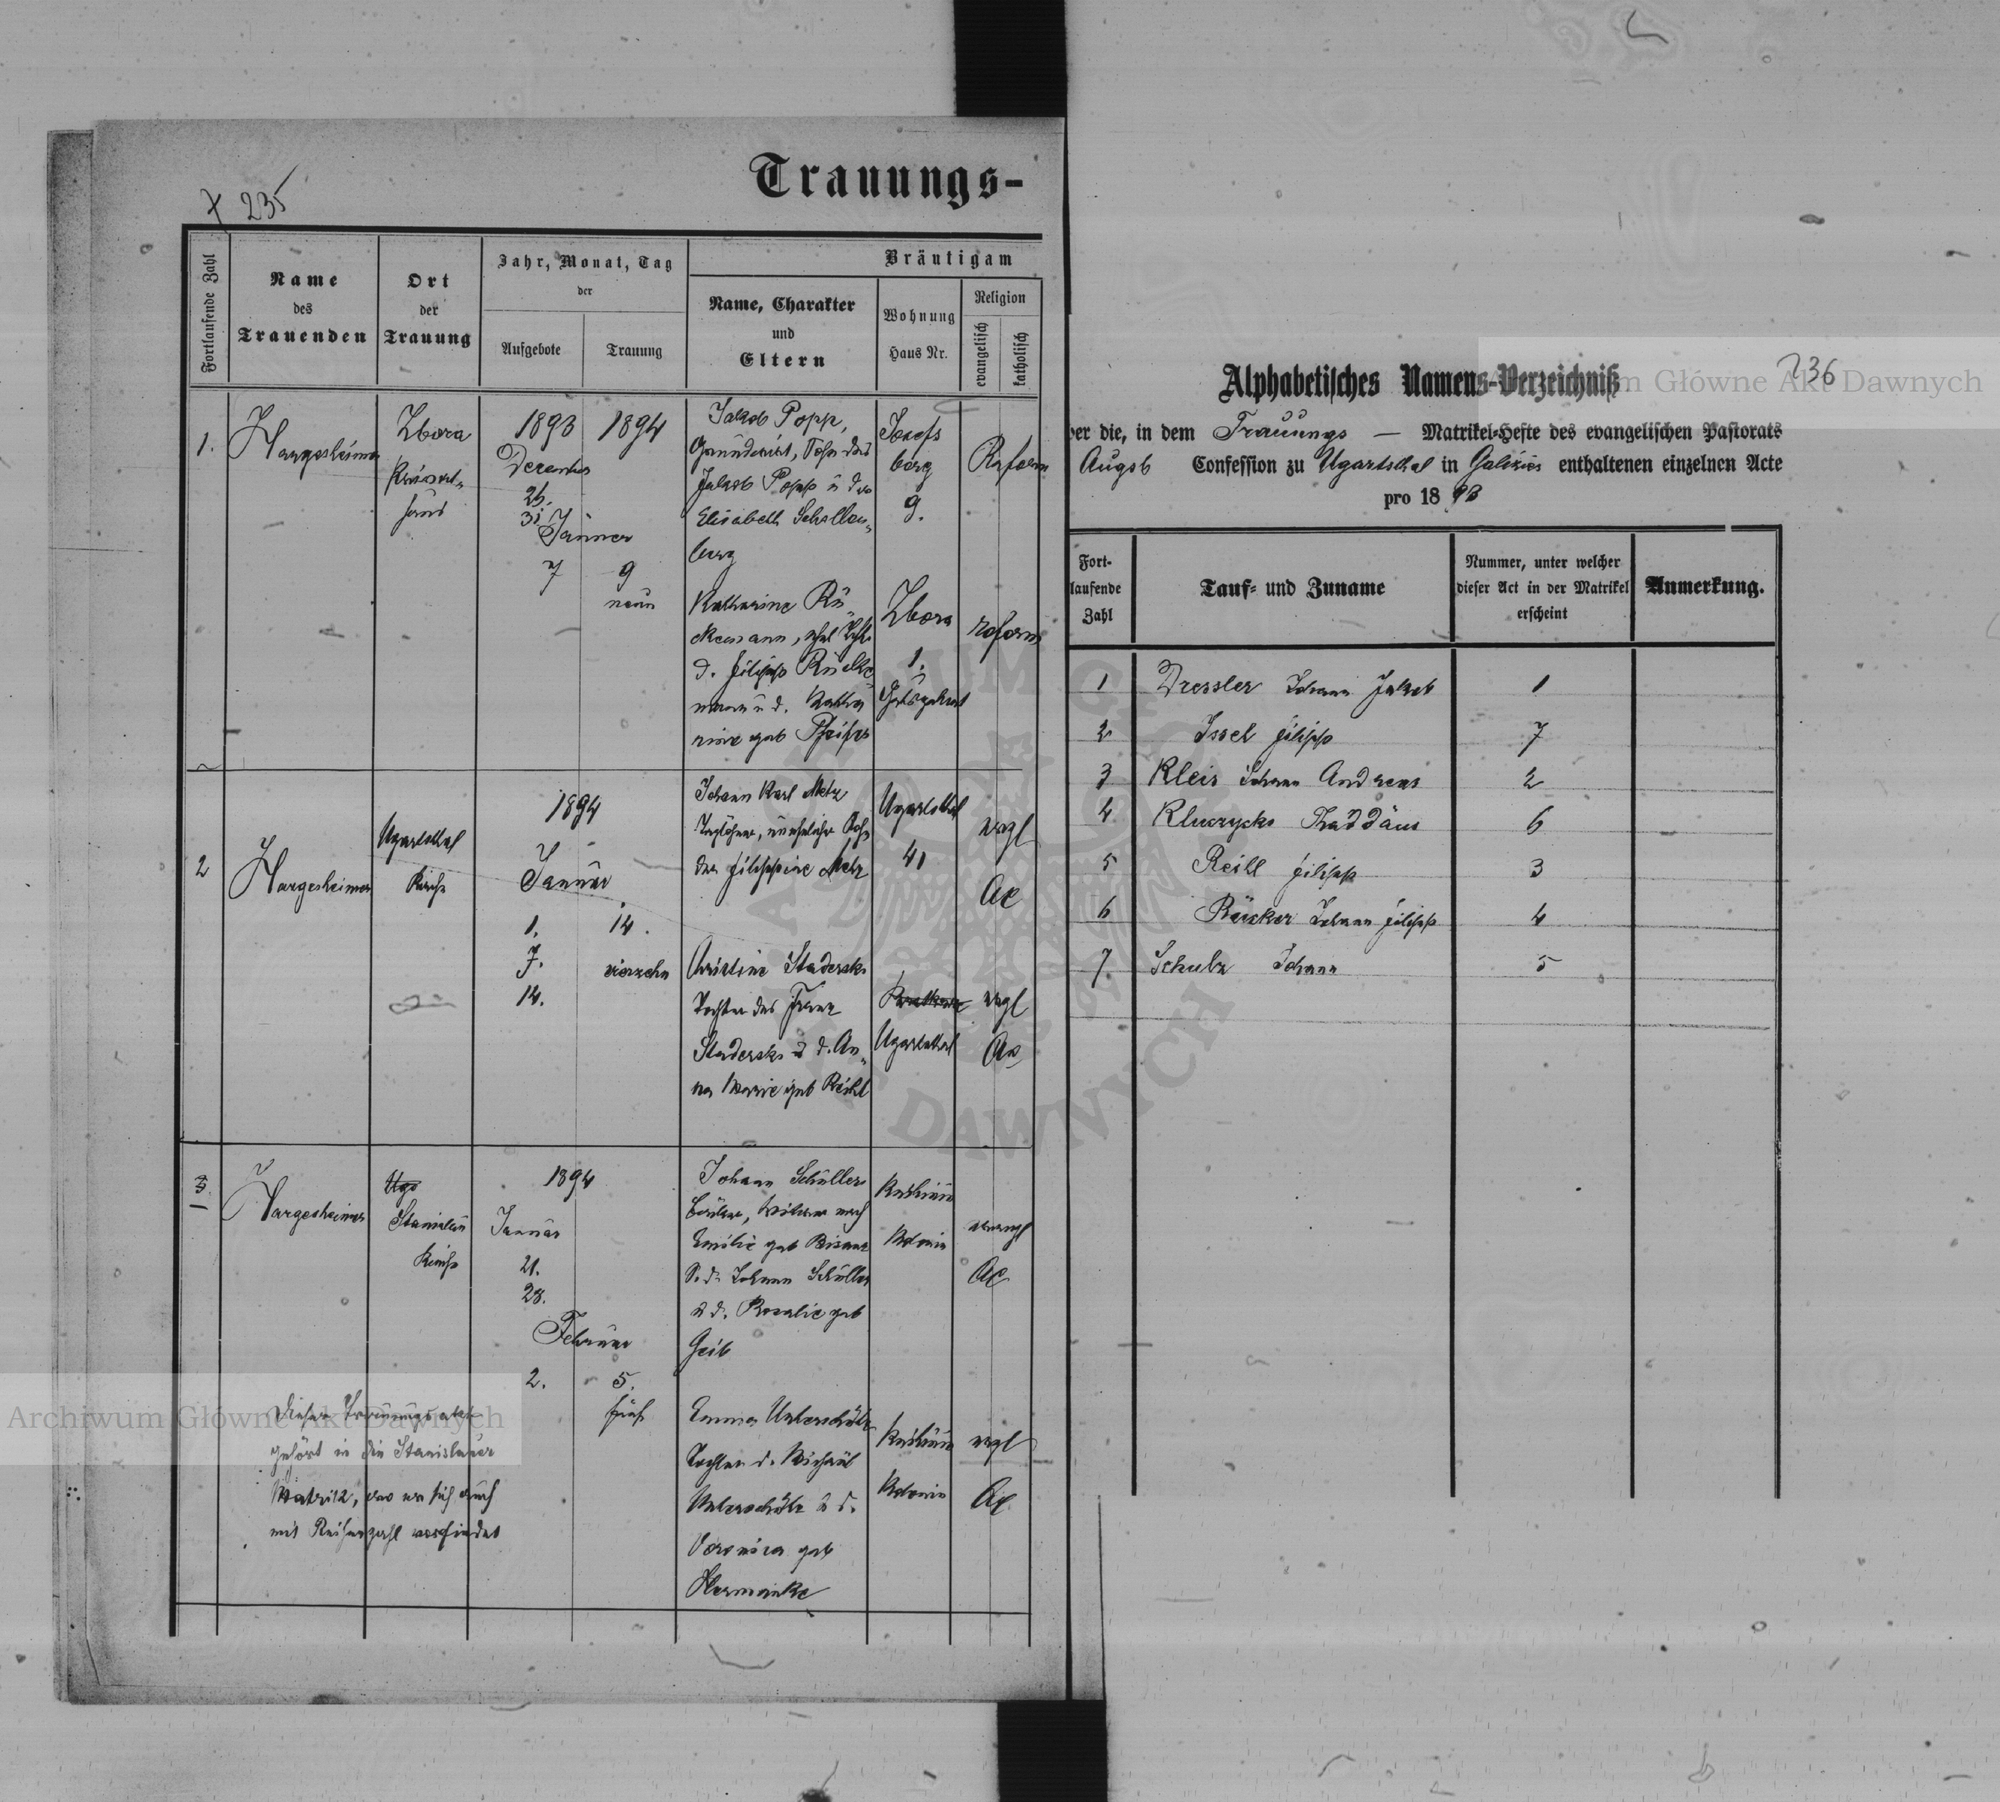 x 235
Trauungs-
Fortlaufende Zahl
Name
des
Trauenden
Ort
der
Trauung
Jahr, Monat, Tag
der
Aufgebote
Trauung
Bräutigam
Name, Charakter
und
Eltern
Wohnung
Haus Nr.
Religion
evangelisch
katholisch
1.
Hargesheimer
Zbora
1893
Decembr
31.
Jänner
7
1894
9
neun
Jakob Popp,
Jakob Popp u der
Elisabeth Schallen„
berg
Josefs
berg
9.
Reform
Katharine Rü„
d. Filipp Rücke„
mann u d. Katha„
rine geb Pfeifer
Zbora
1.
reform
2
Hargesheimer
Ugartsthal
Kirche
1894
Januar
1.
7.
14.
14.
vierzehn
Johann Karl Metz
der Filippine Metz
Ugartsthal
41
evgl
AC
Christine Stadersko
Tochter des Franz
Stadersko u d. An„
na Marie geb Reihl
Ugartsthal
evgl
AC
3.
Hargesheimer
Ugo
Stanislau
Kirche
1894
Januar
21.
28.
Februar
2.
5.
fünf
Johann Schüller
Emilie geb Bisanz
S. d. Johann Schüller
u d. Rosalie geb
Geib
Kolonie
evangl
AC
Emma Unterschütz
Tochter d. Michael
Unterschütz u d.
Veronica geb
Hermanke
Kolonie
evgl
AC
Dieser Trauungsakt
gehört in die Stanislauer
Matrik, wo er sich auch
mit Reihenzahl vorfindet
236
Alphabetisches Namens-Verzeichniß
ber die, in dem Trauungs — Matrikel-Hefte des evangelischen Pastorats
Augsb Confession zu Ugartsthal in Galizien enthaltenen einzelnen Acte
pro 1893
Fort-
laufende
Zahl
Tauf- und Zuname
Nummer, unter welcher
dieser Act in der Matrikel
erscheint
Anmerkung.
1 Dressler Johann Jakob 1
2 Issel Filipp 7
3 Kleis Johann Andreas 2
4 Kluczycko Thaddäus 6
5 Reihl Filipp 3
6 Rücker Johann Filipp 4
7. Schulz Johann 5
Archiwum Główne Akt Dawnych
Archiwum Główne Akt Dawnych
ARCHIWUM GŁÓWNE AKT DAWNYCH